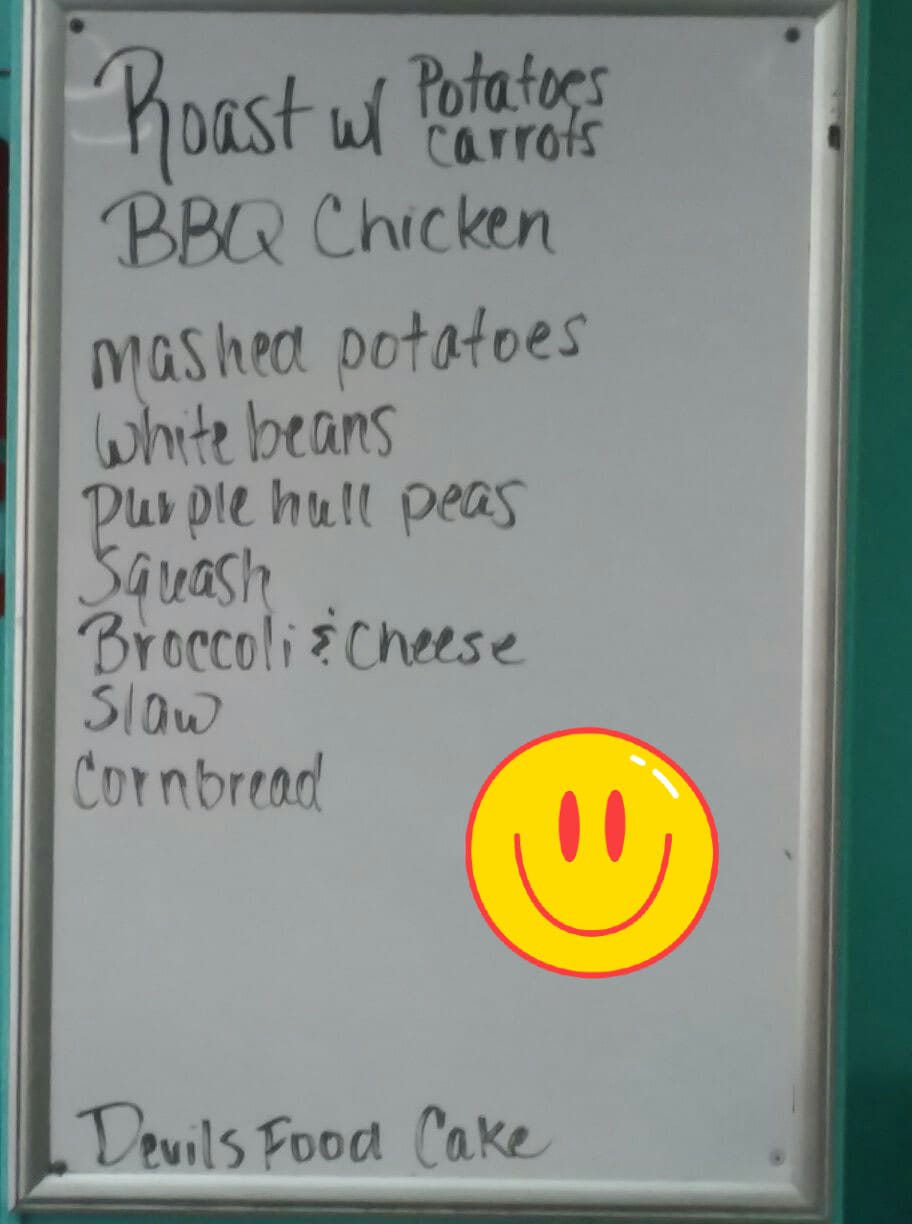 Roast w/ Potatoes
carrots
BBQ Chicken
mashed potatoes
white beans
purple hull peas
Squash
Broccoli & Cheese
Slaw
Cornbread
Devils Food Cake